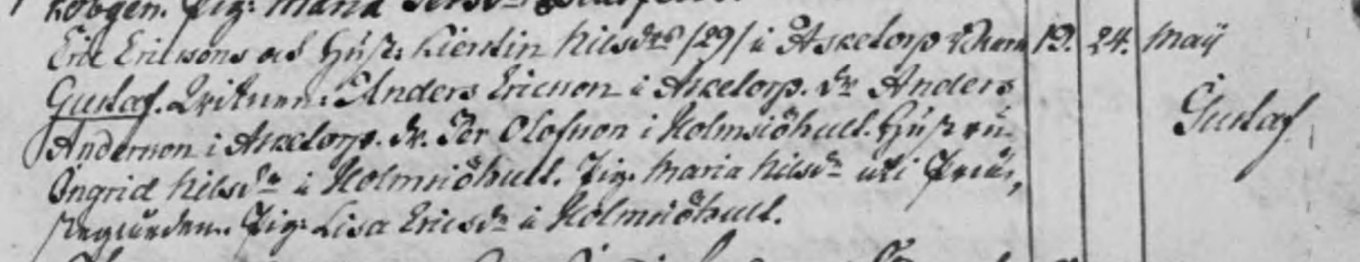 Pig: Maria Persdr
Eric Ericsons och Hust: Kierstin Nilsdrs /29/ i Askelorp 19. 24. Maij
Gustaf. Wittnen: Anders Ericson i Askelorp. Dr Anders Gustaf
Anderson i Askelorp. Dr. Per Olofson i Holmsiöhult. Hust
Ingrid Nilsdr i Holmsiöhult. Pig: Maria Nilsdr uti
Pig: Lisa Ericsdr i Holmsiöhult.